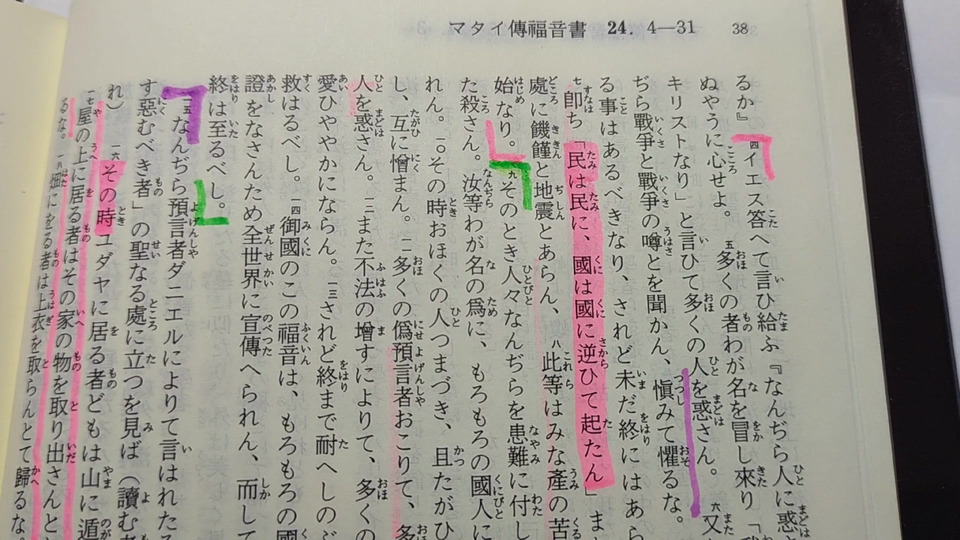 マタイ傳福音書 24. 4—31 38
るか』 四イエス答へて言ひ給ふ『なんぢら人に惑さ
ぬやうに心せよ。 五多くの者わが名を冒し來り『
キリストなり」と言ひて多くの人を惑さん。 六又
ぢら戰爭と戰爭の噂とを聞かん、愼みて懼るな。
る事はあるべきなり、されど未だ終にはあら
七即ち「民は民に、國は國に逆ひて起たん」ま
處に饑饉と地震とあらん、 八此等はみな產の苦
始なり。 九そのとき人々なんぢらを患難に付し
た殺さん。汝等わが名の爲に、もろもろの國人に
れん。 一〇その時おほくの人つまづき、且たがひ
し、互に憎まん。 一一多くの僞預言者おこりて、多
人を惑さん。 一二また不法の增すによりて、多くの
愛ひややかにならん。 一三されど終まで耐へしのぶ
救はるべし。 一四御國のこの福音は、もろもろの國
證をなさんため全世界に宣傳へられん、而して
終は至るべし。
一五なんぢら預言者ダニエルによりて言はれた
す惡むべき者」の聖なる處に立つを見ば（讀む
れ） 一六その時ユダヤに居る者どもは山に遁
一七屋の上に居る者はその家の物を取り出さんと
るな。 一八畑にをる者は上衣を取らんとて歸るな。